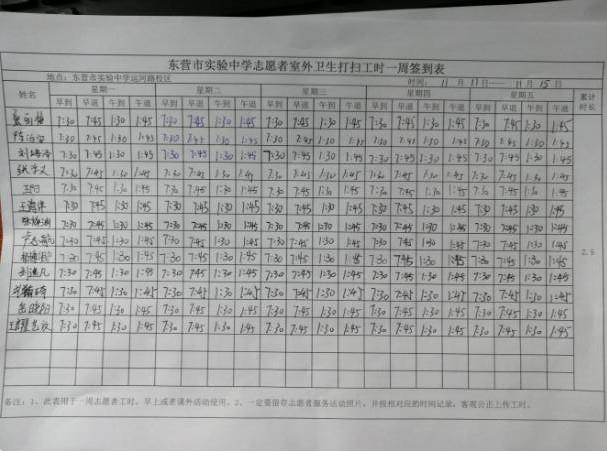 东营市实验中学志愿者室外卫生打扫工时一周签到表
地点：东营市实验中学运河路校区 时间： 11 月 11 日—— 11 月 15 日
姓名 星期一 星期二 星期三 星期四 星期五 累计时长
早到 早退 午到 午退 早到 早退 午到 午退 早到 早退 午到 午退 早到 早退 午到 午退 早到 早退 午到 午退
7:30 7:45 1:30 1:45 7:30 7:45 1:30 1:45 7:30 7:45 1:30 1:45 7:30 7:45 1:30 1:45 7:30 7:45 1:30 1:45
7:30 7:45 1:30 1:45 7:30 7:45 1:30 1:45 7:30 7:45 1:30 1:45 7:30 7:45 1:30 1:45 7:30 7:45 1:30 1:45
7:30 7:45 1:30 1:45 7:30 7:45 1:30 1:45 7:30 7:45 1:30 1:45 7:30 7:45 1:30 1:45 7:30 7:45 1:30 1:45
7:30 7:45 1:30 1:45 7:30 7:45 1:30 1:45 7:30 7:45 1:30 1:45 7:30 7:45 1:30 1:45 7:30 7:45 1:30 1:45
7:30 7:45 1:30 1:45 7:30 7:45 1:30 1:45 7:30 7:45 1:30 1:45 7:30 7:45 1:30 1:45 7:30 7:45 1:30 1:45
7:30 7:45 1:30 1:45 7:30 7:45 1:30 1:45 7:30 7:45 1:30 1:45 7:30 7:45 1:30 1:45 7:30 7:45 1:30 1:45
7:30 7:45 1:30 1:45 7:30 7:45 1:30 1:45 7:30 7:45 1:30 1:45 7:30 7:45 1:30 1:45 7:30 7:45 1:30 1:45
7:30 7:45 1:30 1:45 7:30 7:45 1:30 1:45 7:30 7:45 1:30 1:45 7:30 7:45 1:30 1:45 7:30 7:45 1:30 1:45
2.5
7:30 7:45 1:30 1:45 7:30 7:45 1:30 1:45 7:30 7:45 1:30 1:45 7:30 7:45 1:30 1:45 7:30 7:45 1:30 1:45
7:30 7:45 1:30 1:45 7:30 7:45 1:30 1:45 7:30 7:45 1:30 1:45 7:30 7:45 1:30 1:45 7:30 7:45 1:30 1:45
7:30 7:45 1:30 1:45 7:30 7:45 1:30 1:45 7:30 7:45 1:30 1:45 7:30 7:45 1:30 1:45 7:30 7:45 1:30 1:45
7:30 7:45 1:30 1:45 7:30 7:45 1:30 1:45 7:30 7:45 1:30 1:45 7:30 7:45 1:30 1:45 7:30 7:45 1:30 1:45
7:30 7:45 1:30 1:45 7:30 7:45 1:30 1:45 7:30 7:45 1:30 1:45 7:30 7:45 1:30 1:45 7:30 7:45 1:30 1:45
备注：1、此表用于一周志愿者工时，早上或者课外活动使用。2、一定要留存志愿者服务活动照片，并按相对应的时间记录，客观公正上传工时。